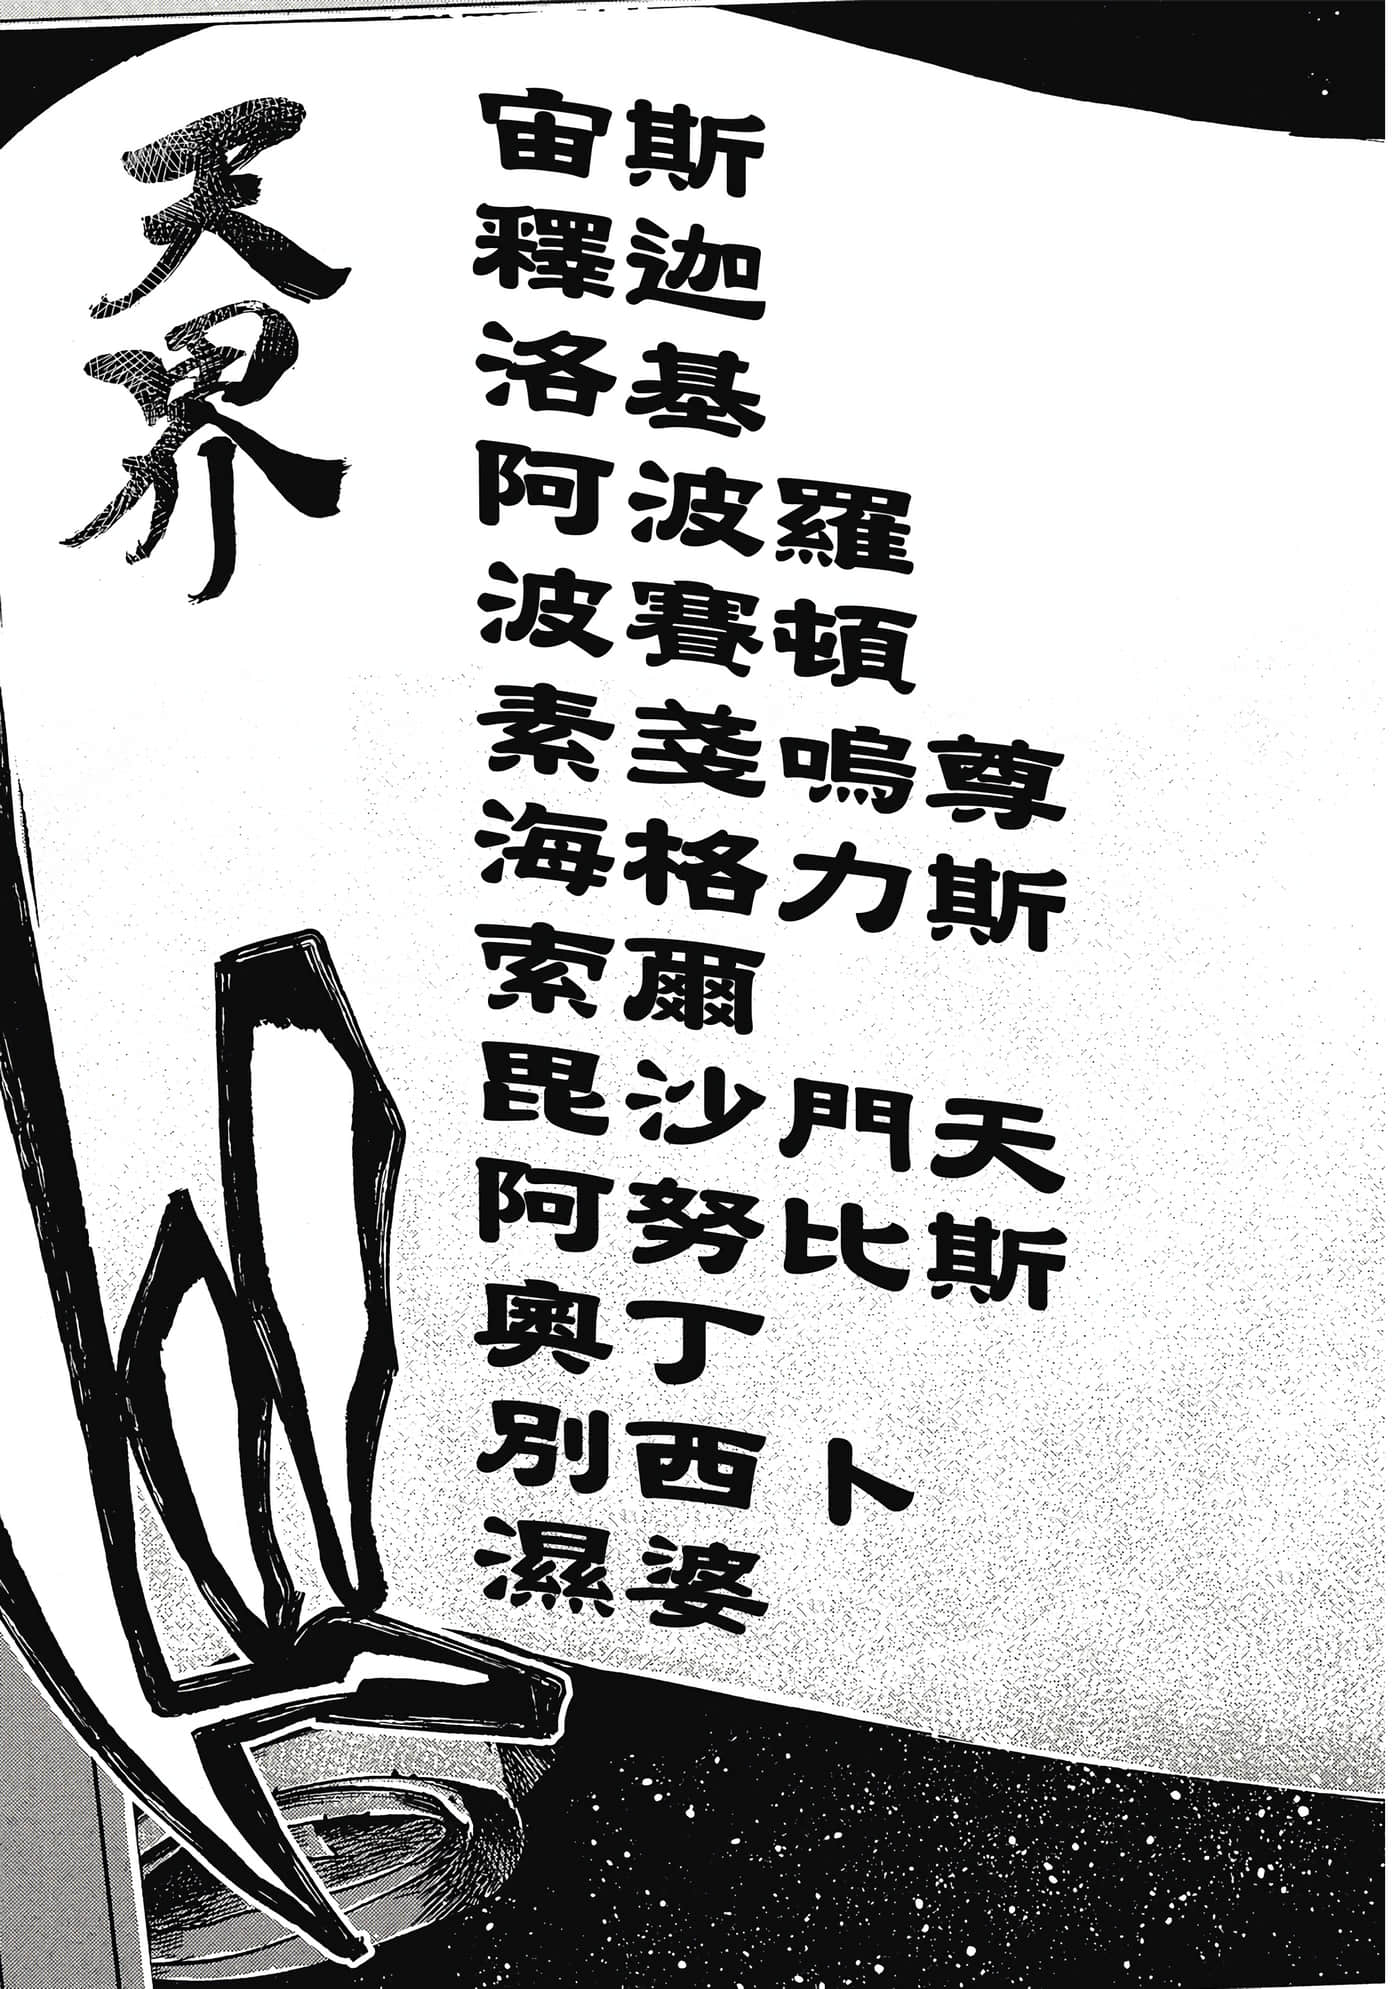 天界
宙斯
釋迦
洛基
阿波羅
波賽頓
素戔嗚尊
海格力斯
索爾
毘沙門天
阿努比斯
奧丁
別西卜
濕婆